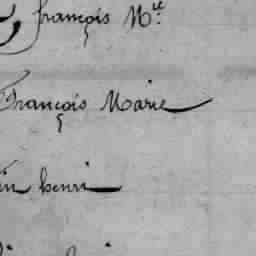 françois M.le
François Marie
in henri